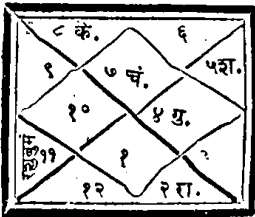 ८ के. ६
९ ७ चं. ५श.
१० ४ गु.
११ १
१२ २रा.